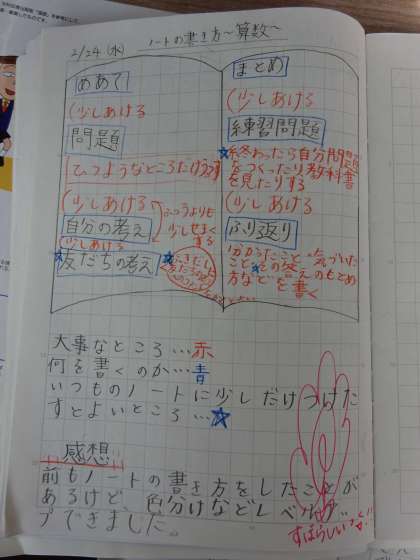 2/24(水) ノートの書き方〜算数〜
めあて
(少しあける
問題
ひつようなところだけうつす
(少しあける
ふつうよりも
少しせまく
する
自分の考え
少しあける
☆友だちの考え
まとめ
(少しあける
練習問題
☆終わったら自分問題
をつくったり教科書
を見たりする
(少しあける
ふり返り
分かったこと 気づいた
こと☆その答えのもとめ
方などを書く
大事なところ…赤
何を書くのか…青
いつものノートに少しだけつけた
すとよいところ…☆
感想
前もノートの書き方をしたことが
あるけど、色分けなどレベルアッ
プできました。
すばらしい